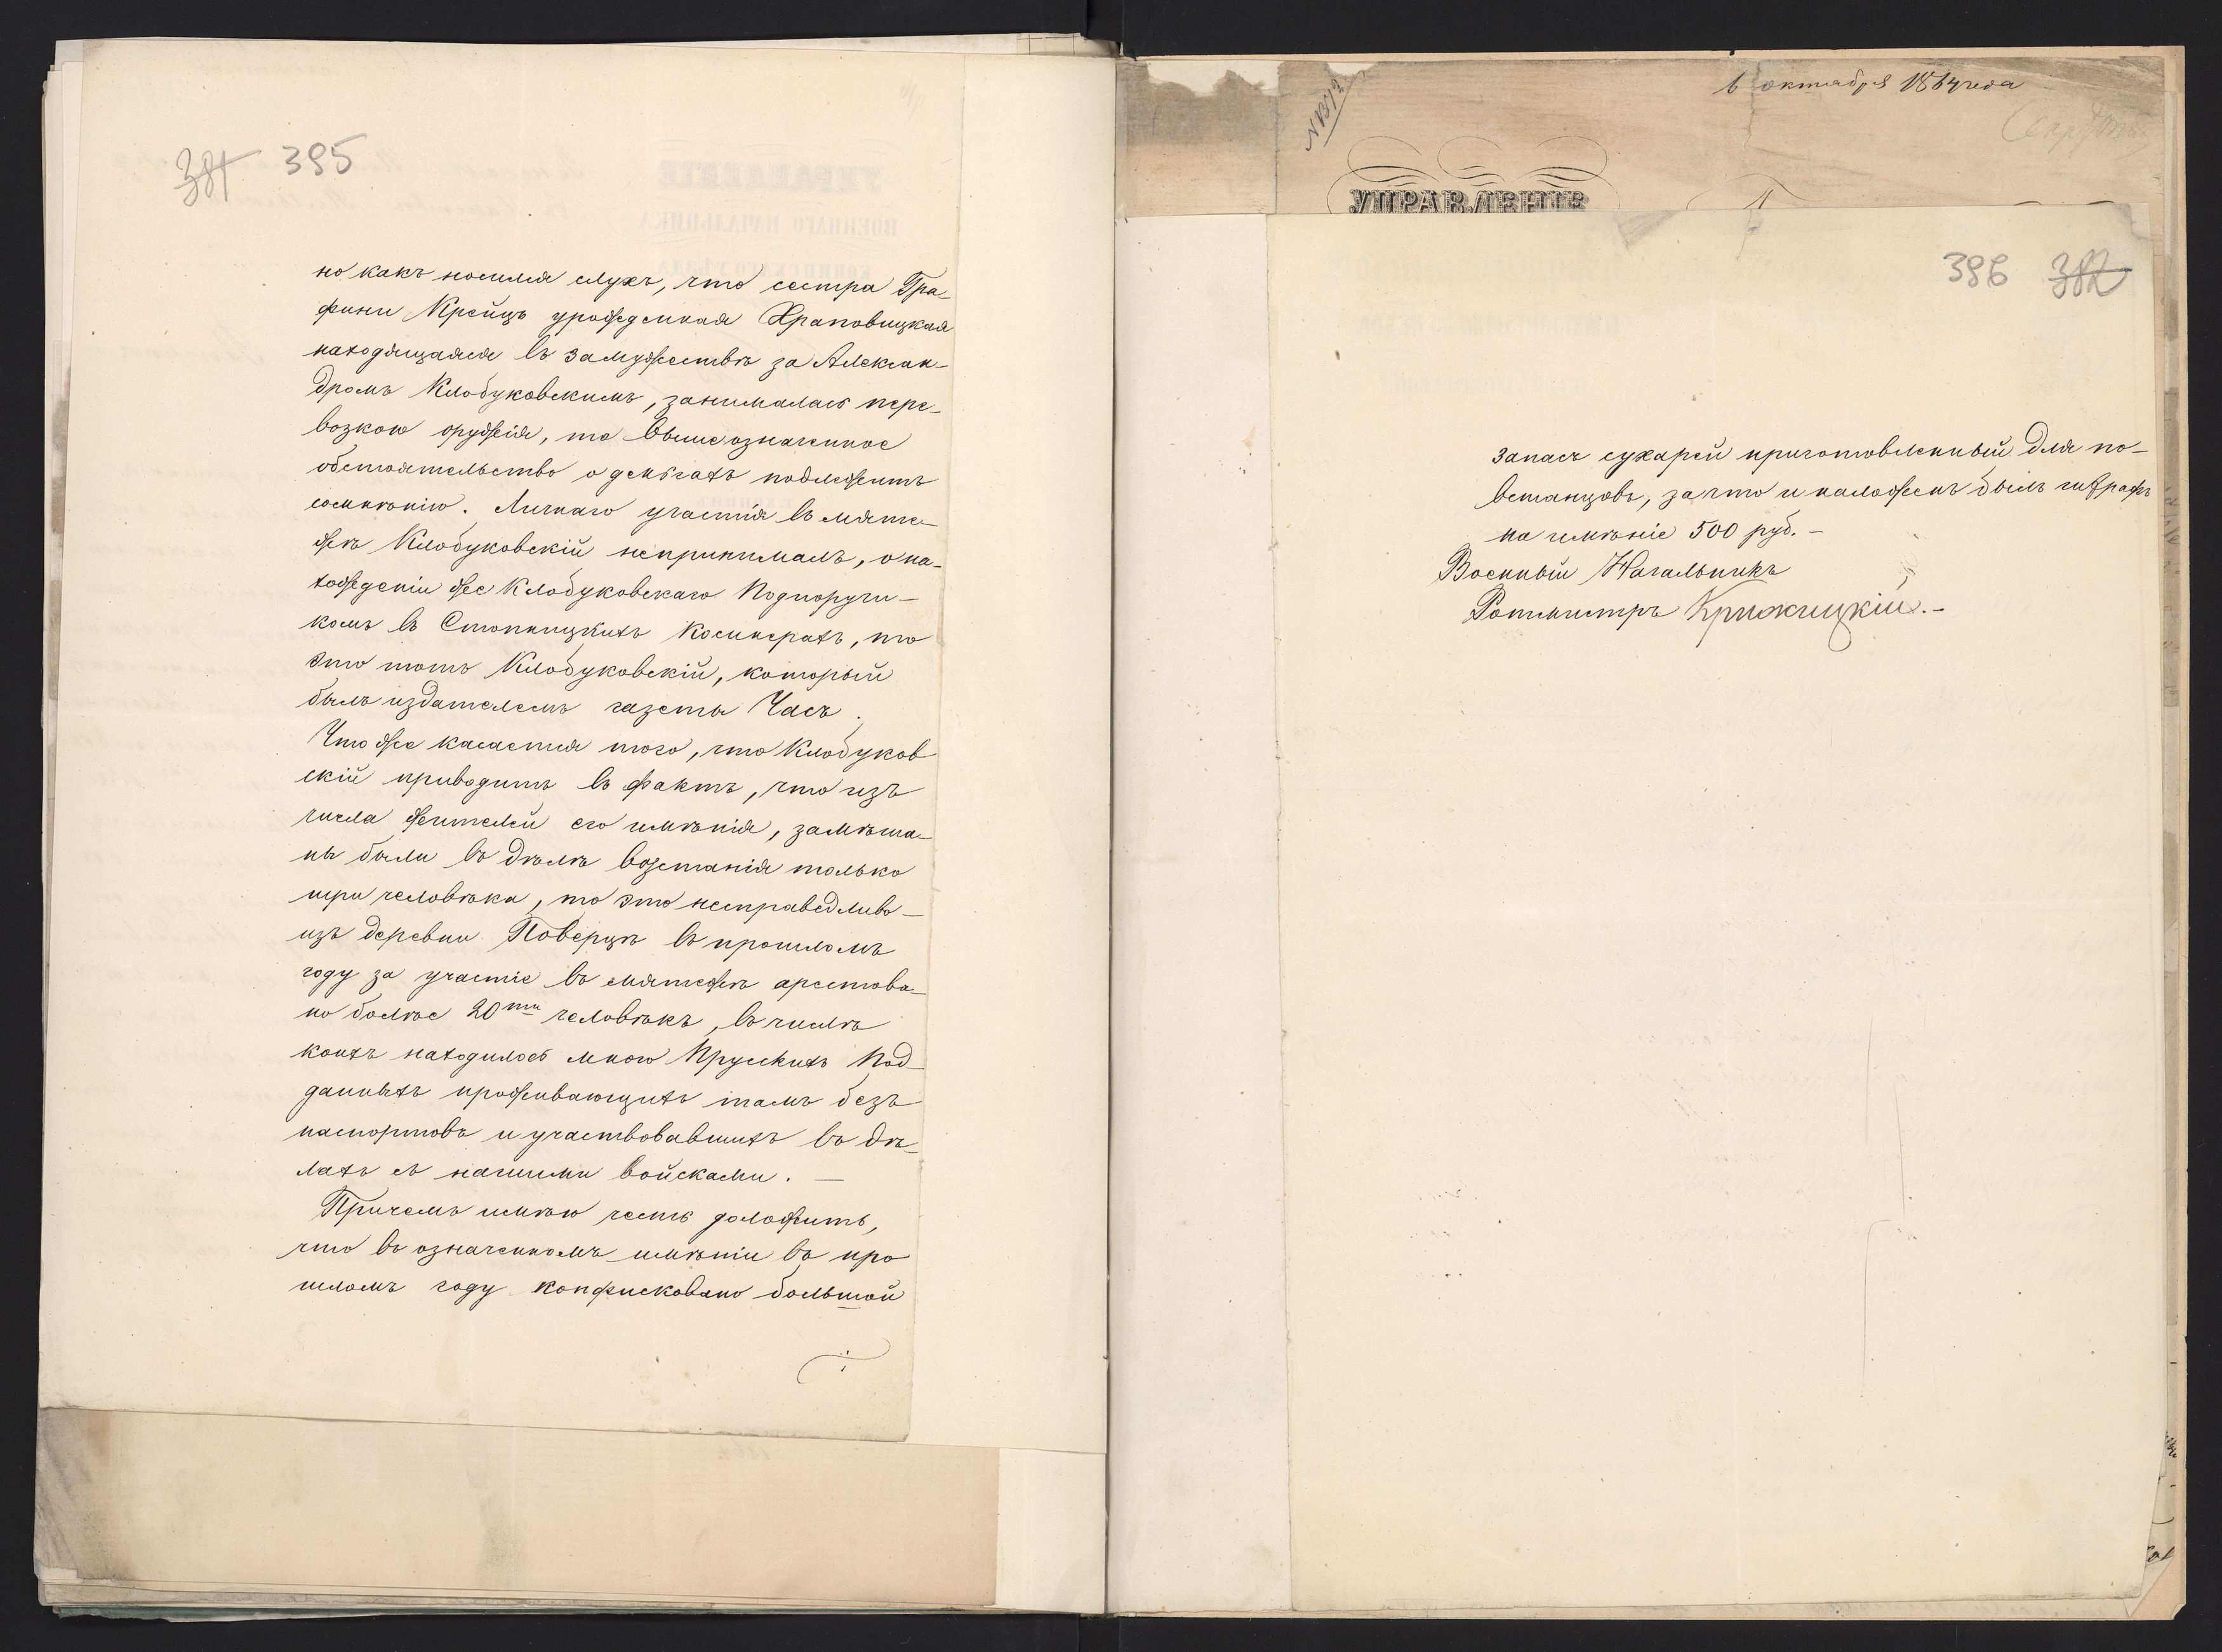 381 395
но какъ носился слухъ, что сестра Гра-
фини Крейцъ урожденная Храповицкая
находящаяся въ замужествѣ за Алексан-
дромъ Клобуковскимъ, занималась пере-
возкою оружія, то вышеозначенное
обстоятельство о деньгахъ подлежитъ
сомнѣнію. Личнаго участія въ мяте-
жѣ Клобуковскій непринималъ, о на-
хожденіи же Клобуковскаго Подпоручи-
комъ въ Стопницкихъ Косинерахъ, то
это тотъ Клобуковскій, который
былъ издателемъ газеты Часъ.
Что же касается того, что Клобуков
скій приводитъ въ фактъ, что изъ
числа жителей его имѣнія, замѣша-
ны были въ дѣлѣ возстанія только
три человѣка, то это несправедливо –
изъ деревни Поверцѣ въ прошломъ
году за участіе въ мятежѣ арестова-
но болѣе 20ти человѣкъ, въ числѣ
коихъ находилось много Прусскихъ Под-
данныхъ проживающихъ тамъ безъ
паспортовъ и участвовавшихъ въ дѣ-
лахъ съ нашими войсками. —
Причемъ имѣю честь доложить,
что въ означенномъ имѣніи въ про
шломъ году конфисковано большой
6 октября 1864 года
УПРАВЛЕНІЕ
396 382
запасъ сухарей приготовленный для по-
встанцовъ, за что и наложенъ былъ штрафъ
на имѣніе 500 руб. –
Военный Начальникъ
Ротмистръ Крижицкій. –